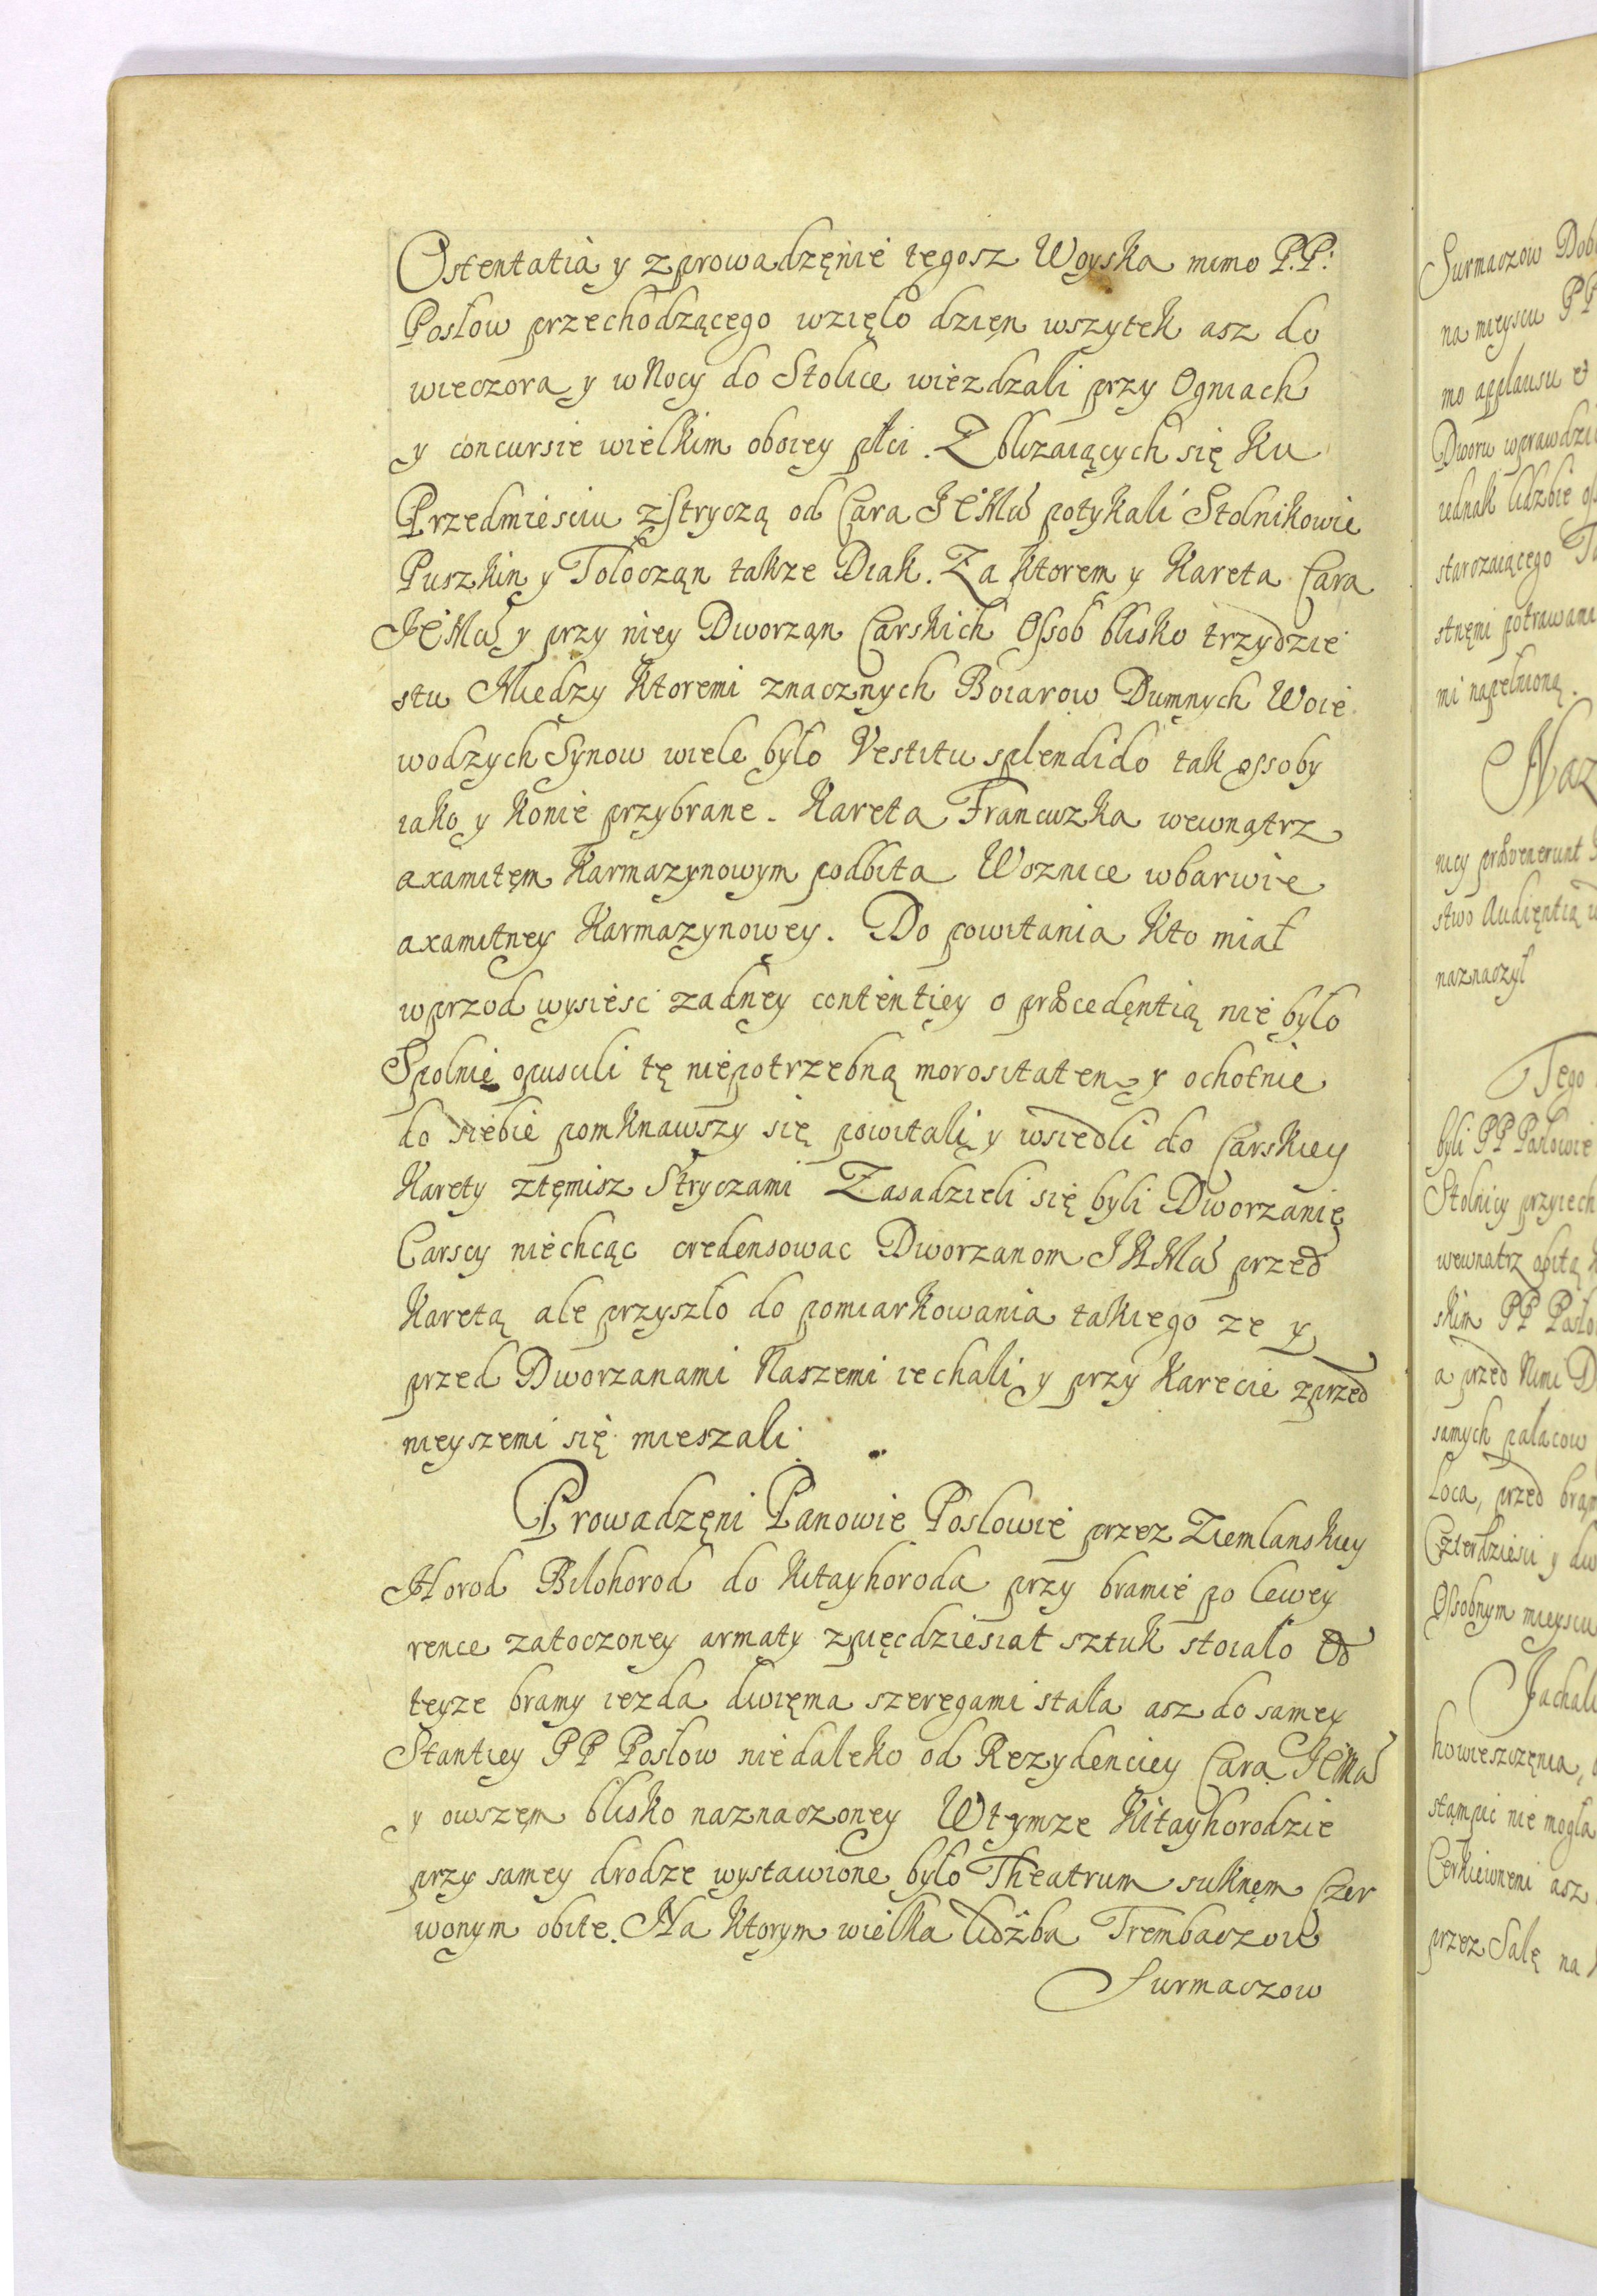 Ostentatia y zprowadzęnie tegosz Woyska mimo P.P:
Posłow przechodzącego wzięło dzięn wszytek asz do
wieczora y w Nocy do Stolice wiezdzali przy Ogniach
y concursie wielkim oboiey płci. Zblizaiących się ku
Przedmiesciu zStryczą od Cara JEMci potykali Stolnikowie
Puszkin y Tołocząn takze Diak. Za ktorem y Kareta Cara
JEMci y przy niey Dworząn Carskich Ossob blisko trzydzie
stu Miedzy ktoremi znacznych Boiarow Dumnych Woie
wodzych Synow wiele było Vestitu splendido tak ossoby
iako y konie przybrane. Kareta Francuzka wewnątrz
axamitęm Karmazynowym podbita Woznice wbarwie
axamitney Karmazynowey. Do powitania kto miał
wprzod wysieść zadney contentiey o præcedęntią nie było
Spolnie opuscili tę niepotrzebną morositatem y ochotnie
do siebie pomknawszy się powitali y wsiedli do Carskiey
Karety ztęmisz Stryczami Zasadzieli się byli Dworzanie
Carscy niechcąc credensowac Dworzanom JKMci przed
Karetą ale przyszło do pomiarkowania takiego ze y
przed Dworzanami Naszemi iechali y przy Karecie zprzed
nieyszemi się mieszali
Prowadzęni Panowie Posłowie przez Ziemlanskiey
Horod Biłohorod do Kitayhoroda przy bramie po lewey
rence zatoczoney armaty zpięcdziesiat sztuk stoiało Od
teyze bramy iezda dwięma szeregami stała asz do samey
Stantiey PP Posłow niedaleko od Rezydenciey Cara JEMci
y owszęm blisko naznaczoney Wtymze Kitayhorodzie
przy samey drodze wystawione było Theatrum suknęm Czer
wonym obite. Na ktorym wielka lidźba Trembaczow
Surmaczow
Surmaczow
na mieyscu PP
mo applausu et
Dworu wprawdzi
iednak lidzbie
starczaiącego
stnęmi potrawami
mi napełnioną.
Naz
nicy prævenerunt
stwo Audięntią
naznaczył
Tego
byli PP Posłowie
Stolnicy przyiech
wewnatrz obitą
skim PP Posło
a przed Nimi D
samych pałacow
Loca, przed
Czterdziesci y dw
Ossobnym mieyscu
Jachali
howieszczęnia,
stąmpic nie mogła
Cerkiewnemi asz
przez Salę na